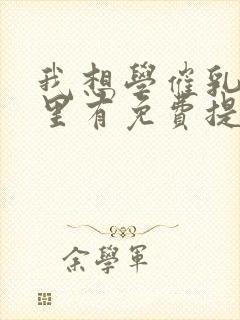 我想學催乳
里有免費提
余學軍